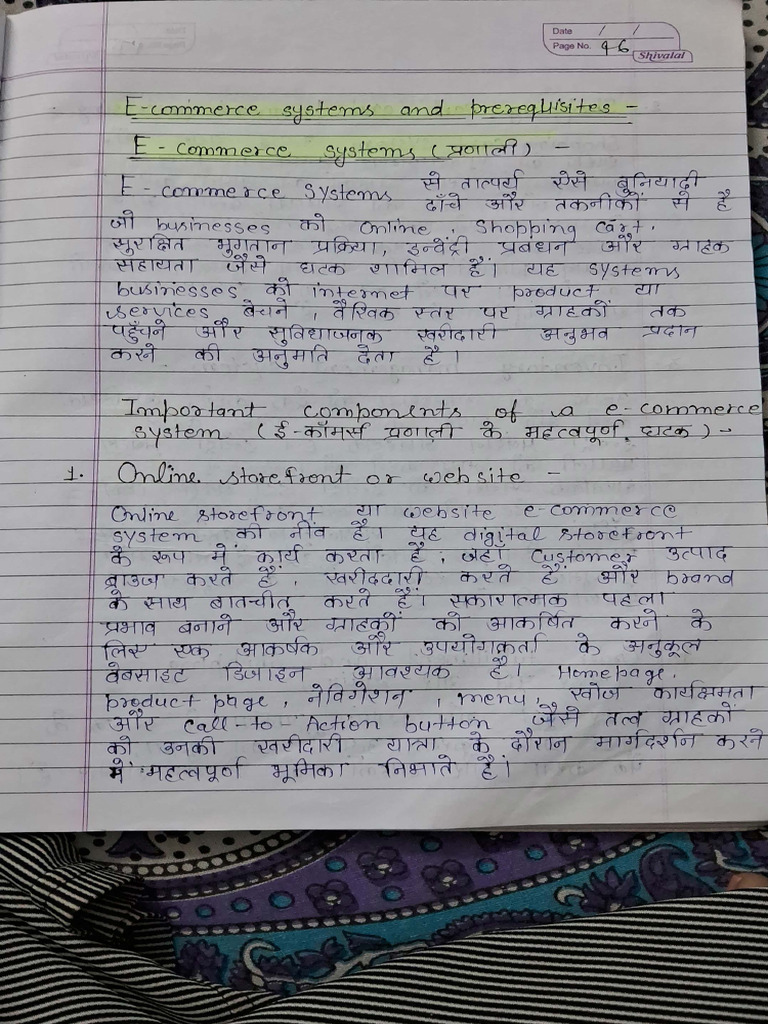 Date / /
Page No. 96
Shivalal
E-commerce systems and prerequisites -
E-commerce systems (प्रणाली) -
E-commerce systems से तात्पर्य ऐसे बुनियादी
ढाँचे और तकनीकों से है
जो businesses को online, shopping cart,
सुरक्षित भुगतान प्रक्रिया, इन्वेंट्री प्रबंधन और ग्राहक
सहायता जैसे घटक शामिल हैं। यह systems
businesses को internet पर product या
services बेचने, वैश्विक स्तर पर ग्राहकों तक
पहुँचने और सुविधाजनक खरीदारी अनुभव प्रदान
करने की अनुमति देता है।
Important components of a e-commerce
system (ई-कॉमर्स प्रणाली के महत्वपूर्ण घटक) -
1. Online storefront or website -
Online storefront या website e-commerce
system की नींव है। यह digital storefront
के रूप में कार्य करता है, जहाँ customer उत्पाद
ब्राउज करते हैं, खरीददारी करते हैं और brand
के साथ बातचीत करते हैं। सकारात्मक पहला
प्रभाव बनाने और ग्राहकों को आकर्षित करने के
लिए एक आकर्षक और उपयोगकर्ता के अनुकूल
वेबसाइट डिजाइन आवश्यक है। Homepage,
product page, नेविगेशन, menu, खोज कार्यक्षमता
और call-to-Action button जैसे तत्व ग्राहकों
को उनकी खरीदारी यात्रा के दौरान मार्गदर्शन करने
में महत्वपूर्ण भूमिका निभाते हैं।